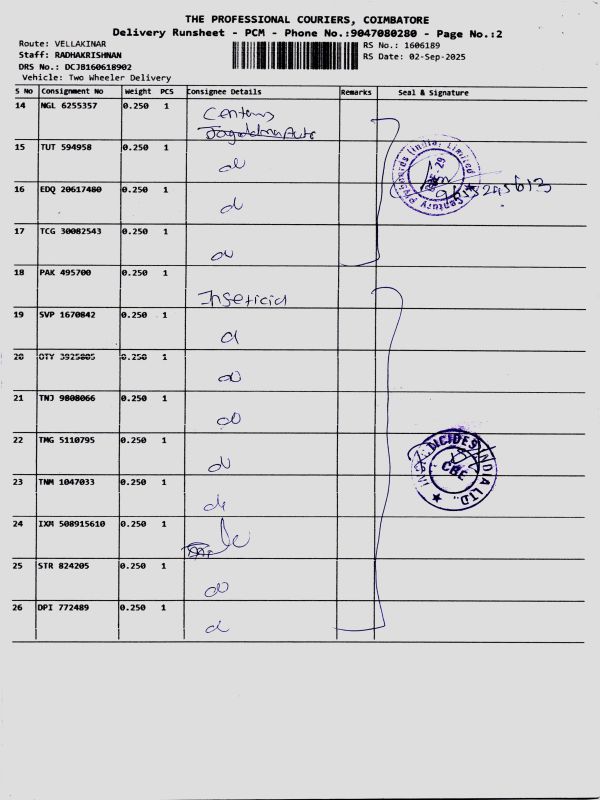 THE PROFESSIONAL COURIERS, COIMBATORE
Delivery Runsheet - PCM - Phone No.:9047080280 - Page No.:2
Route: VELLAKINAR
RS No.: 1606189
Staff: RADHAKRISHNAN
RS Date: 02-Sep-2025
DRS No.: DCJB160618902
Vehicle: Two Wheeler Delivery
S No Consignment No Weight PCS Consignee Details Remarks Seal & Signature
14 NGL 6255357 0.250 1
15 TUT 594958 0.250 1
16 EDQ 20617480 0.250 1
17 TCG 30082543 0.250 1
18 PAK 495700 0.250 1
Inseticid
19 SVP 1670842 0.250 1
20 OTY 3925805 0.250 1
21 TNJ 9808066 0.250 1
22 TMG 5110795 0.250 1
23 TNM 1047033 0.250 1
24 IXM 508915610 0.250 1
25 STR 824205 0.250 1
26 DPI 772489 0.250 1
Century Plyboards (India) Limited
CBE - 29
INDIA LTD.
CBE